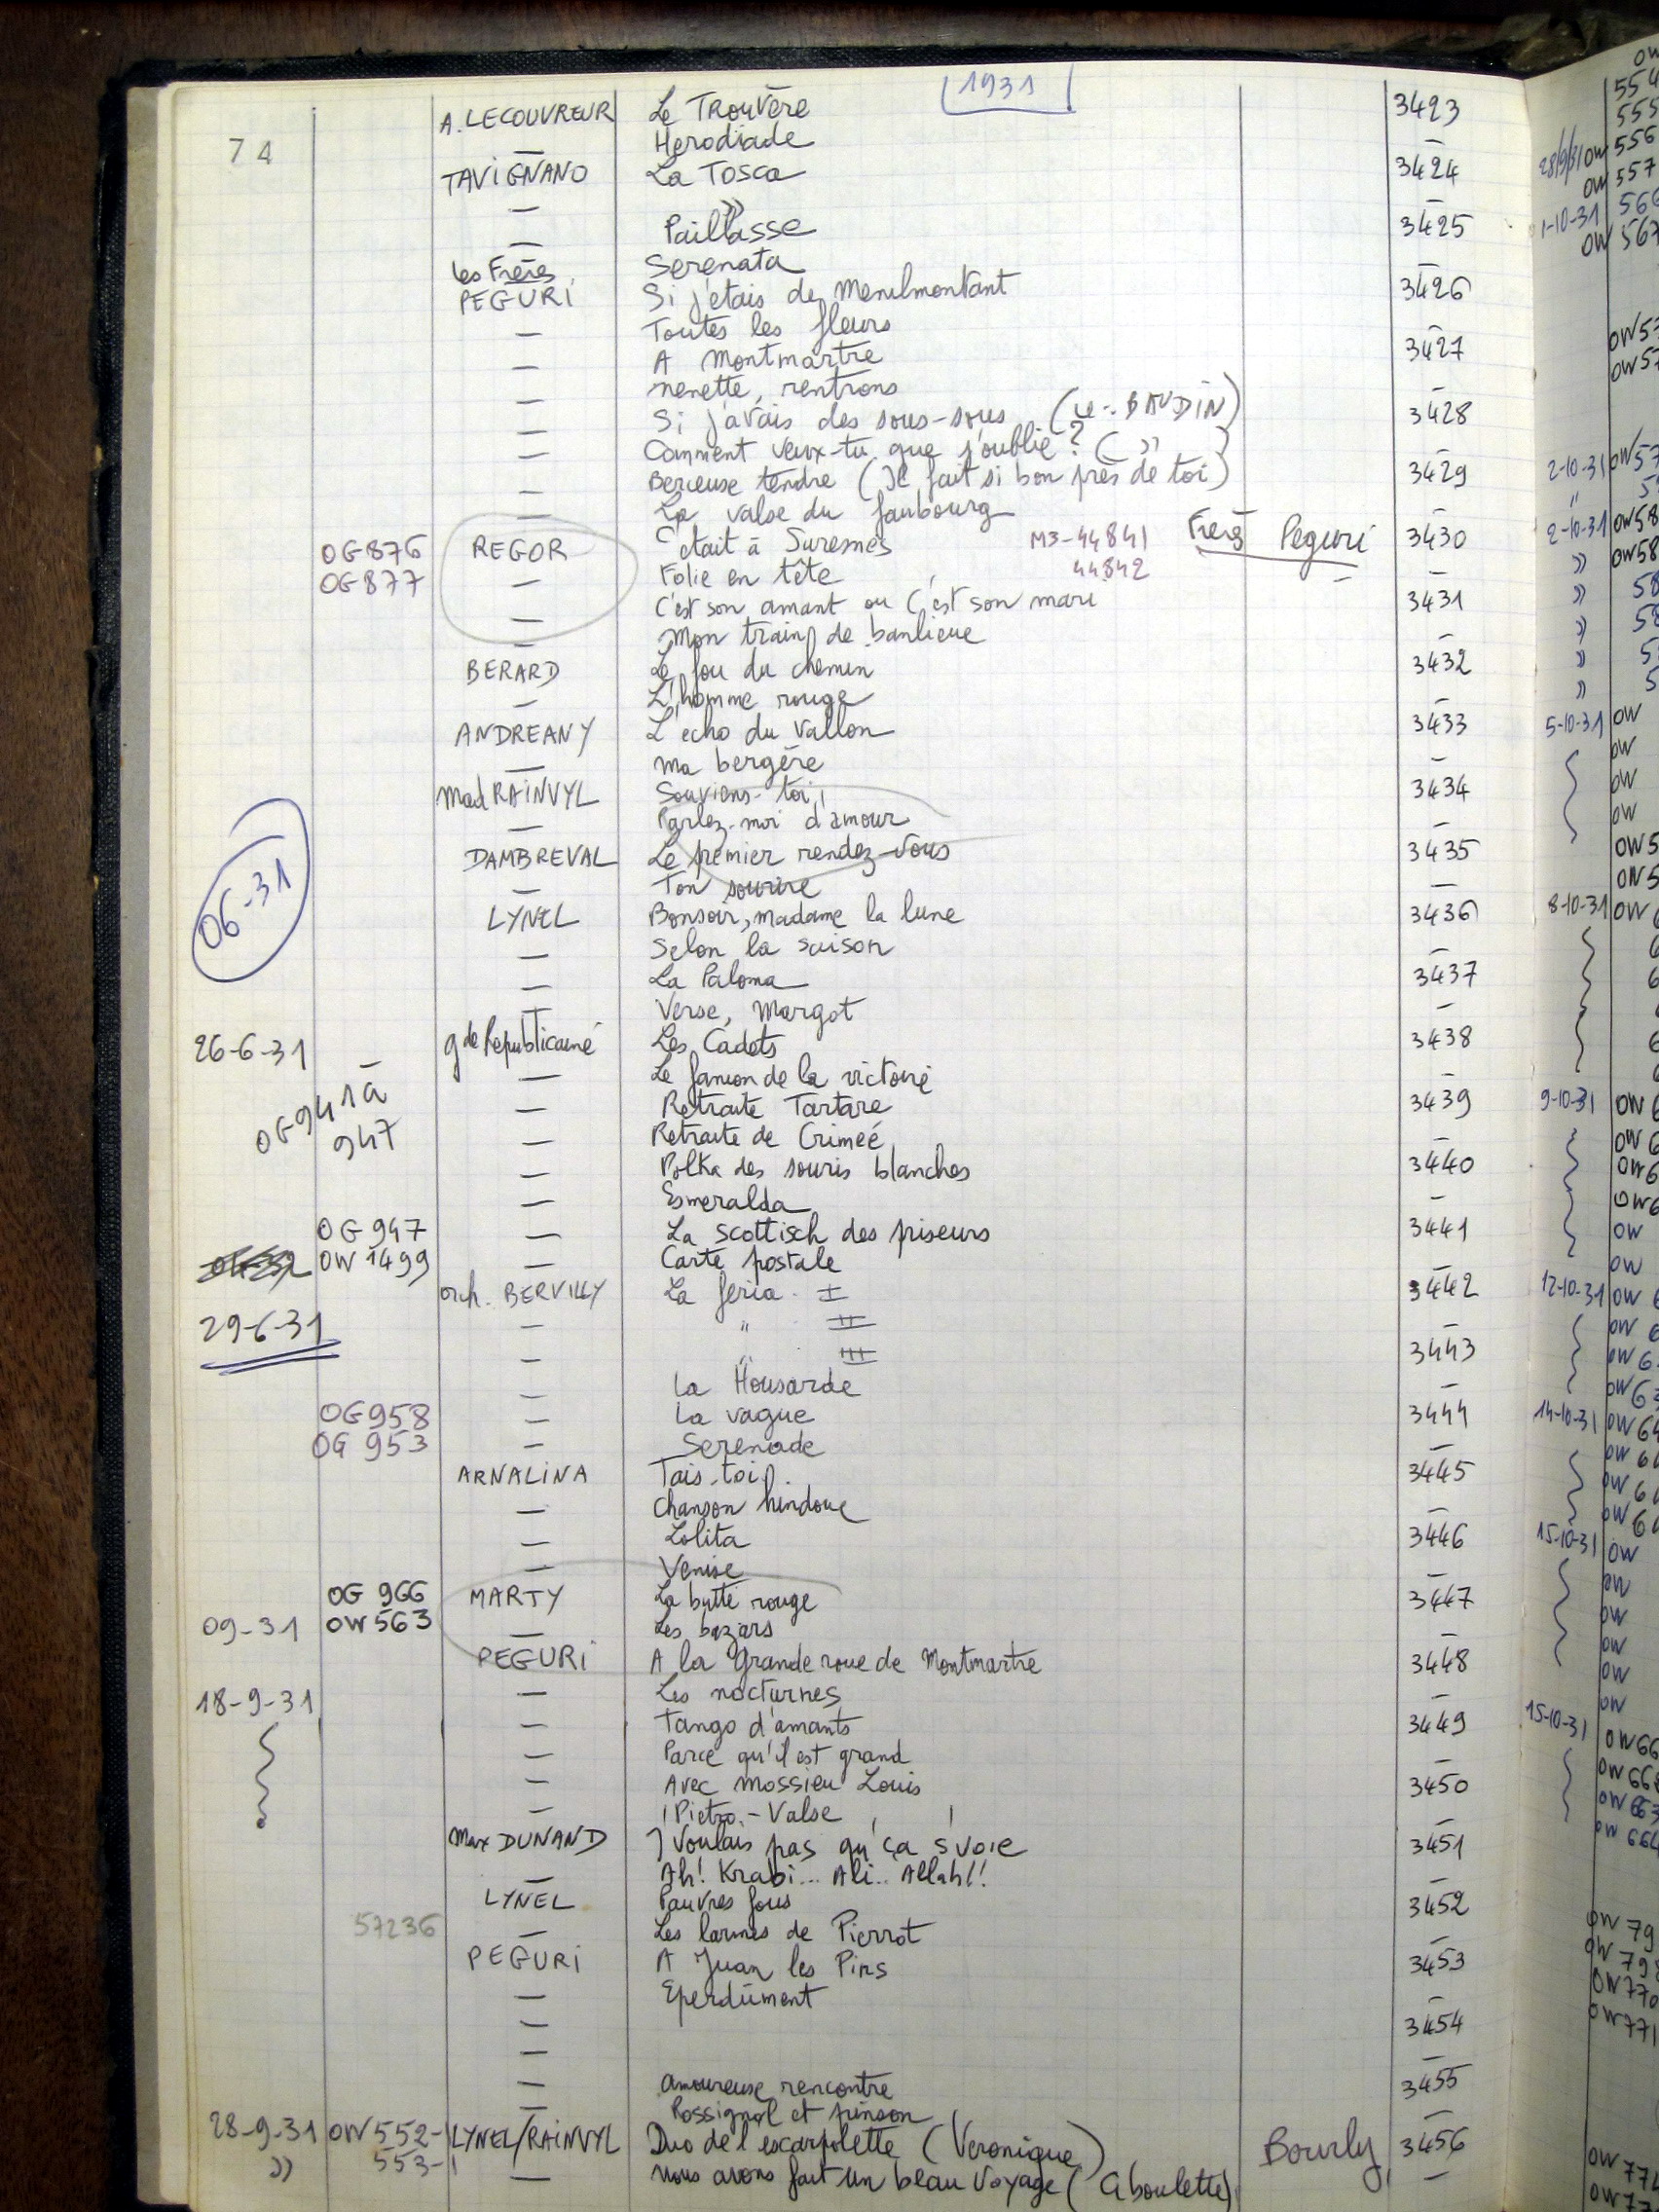 1931
74
A. LECOUVREUR Le Trouvère 3423
— Herodiade —
TAVIGNANO La Tosca 3424
— » —
— Paillasse 3425
Serenata —
les Frères PEGURI Si j'étais de Menilmontant 3426
— Toutes les fleurs —
A Montmartre 3427
— nenette, rentrons —
— Si j'avais des sous-sous (BAUDIN) 3428
— Comment veux-tu que j'oublie? ( » ) —
Berceuse tendre (Il fait si bon près de toi) 3429
— La valse du faubourg —
OG876 REGOR C'etait à Suresnes M3-44841 Frères Peguri 3430
OG877 — Folie en tête 44842 — —
C'est son amant ou C'est son mari 3431
— Mon train de banlieue —
BERARD Le fou du chemin 3432
— L'homme rouge —
ANDREANY L'echo du Vallon 3433
— Ma bergère —
Mad RAINVYL Souviens-toi 3434
— Parlez-moi d'amour —
DAMBREVAL Le premier rendez-vous 3435
— Ton sourire —
06-31
LYNEL Bonsoir, madame la lune 3436
— Selon la saison —
— La Paloma 3437
— Verse, Margot —
26-6-31 gde Republicaine Les Cadets 3438
— Le fanion de la victoire —
OG941 à 947
— Retraite Tartare 3439
— Retraite de Crimeé —
— Polka des souris blanches 3440
— Esmeralda —
OG 947 — La scottisch des priseurs 3441
OW 1499 — Carte postale —
orch. BERVILLY La feria I 3442
29-6-31 — " II —
— " III 3443
— La Housarde —
OG958 — La vague 3444
OG 953 — Serenade —
ARNALINA Tais-toi 3445
— Chanson hindoue —
— Lolita 3446
— Venise —
OG 966 MARTY La butte rouge 3447
09-31 OW563 — Les bazars —
PEGURI A la Grande roue de Montmartre 3448
18-9-31 — Les nocturnes —
— Tango d'amants 3449
— Parce qu'il est grand —
— Avec Mossieu Louis 3450
— Pietro-Valse —
Max DUNAND J'Voulais pas qu'ça s'voie 3451
— Ah! Krabi... Ali.. Allah!! —
LYNEL Pauvres fous 3452
57236 — Les larmes de Pierrot —
PEGURI A Juan les Pins 3453
— Eperdûment —
— 3454
— —
— amoureuse rencontre 3455
— Rossignol et pinson —
28-9-31 OW552- LYNEL/RAINVYL Duo de l'escarpolette (Veronique) Bourly 3456
» 553- — Nous avons fait un beau Voyage (Ciboulette) —
28/9/31 OW 556
OW 557
1-10-31 566
OW 567
2-10-31
"
2-10-31
»
»
»
»
»
5-10-31 OW
OW
OW
OW
8-10-31 OW
9-10-31 OW
12-10-31 OW
14-10-31 OW
15-10-31 OW
OW
OW
OW
OW
15-10-31 OW
OW 663
OW 664
OW 771